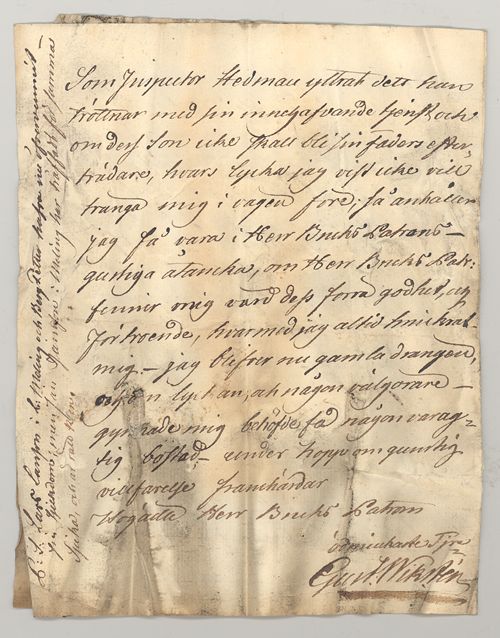 Som Inspector Hedman yttrat det han
tröttnar med sin innehafvande tjenst och
om dess Son icke skall bli sin faders efter-
trädare, hvars lycka jag visst icke vill
tränga mig i vägen före; så anhåller
jag få vara i Herr Bruks Patrons
gunstiga åtancka, om Herr Bruks Patr:
finner mig värd dess förra godhet, och
förtroende, hvarmed jag altid smickrat
mig – jag blifver nu gamla drängen,
och lyckan, och någon välgörare –
gynnade mig behöfde få någon varag-
tig bostad – under hopp om gunstig
villfarelse framhärdar
Högädle Herr Bruks Patrons
ödmjukaste Tje-
Gust. Wiksten
P. S. Lars Larsson i L. Meling och Petter